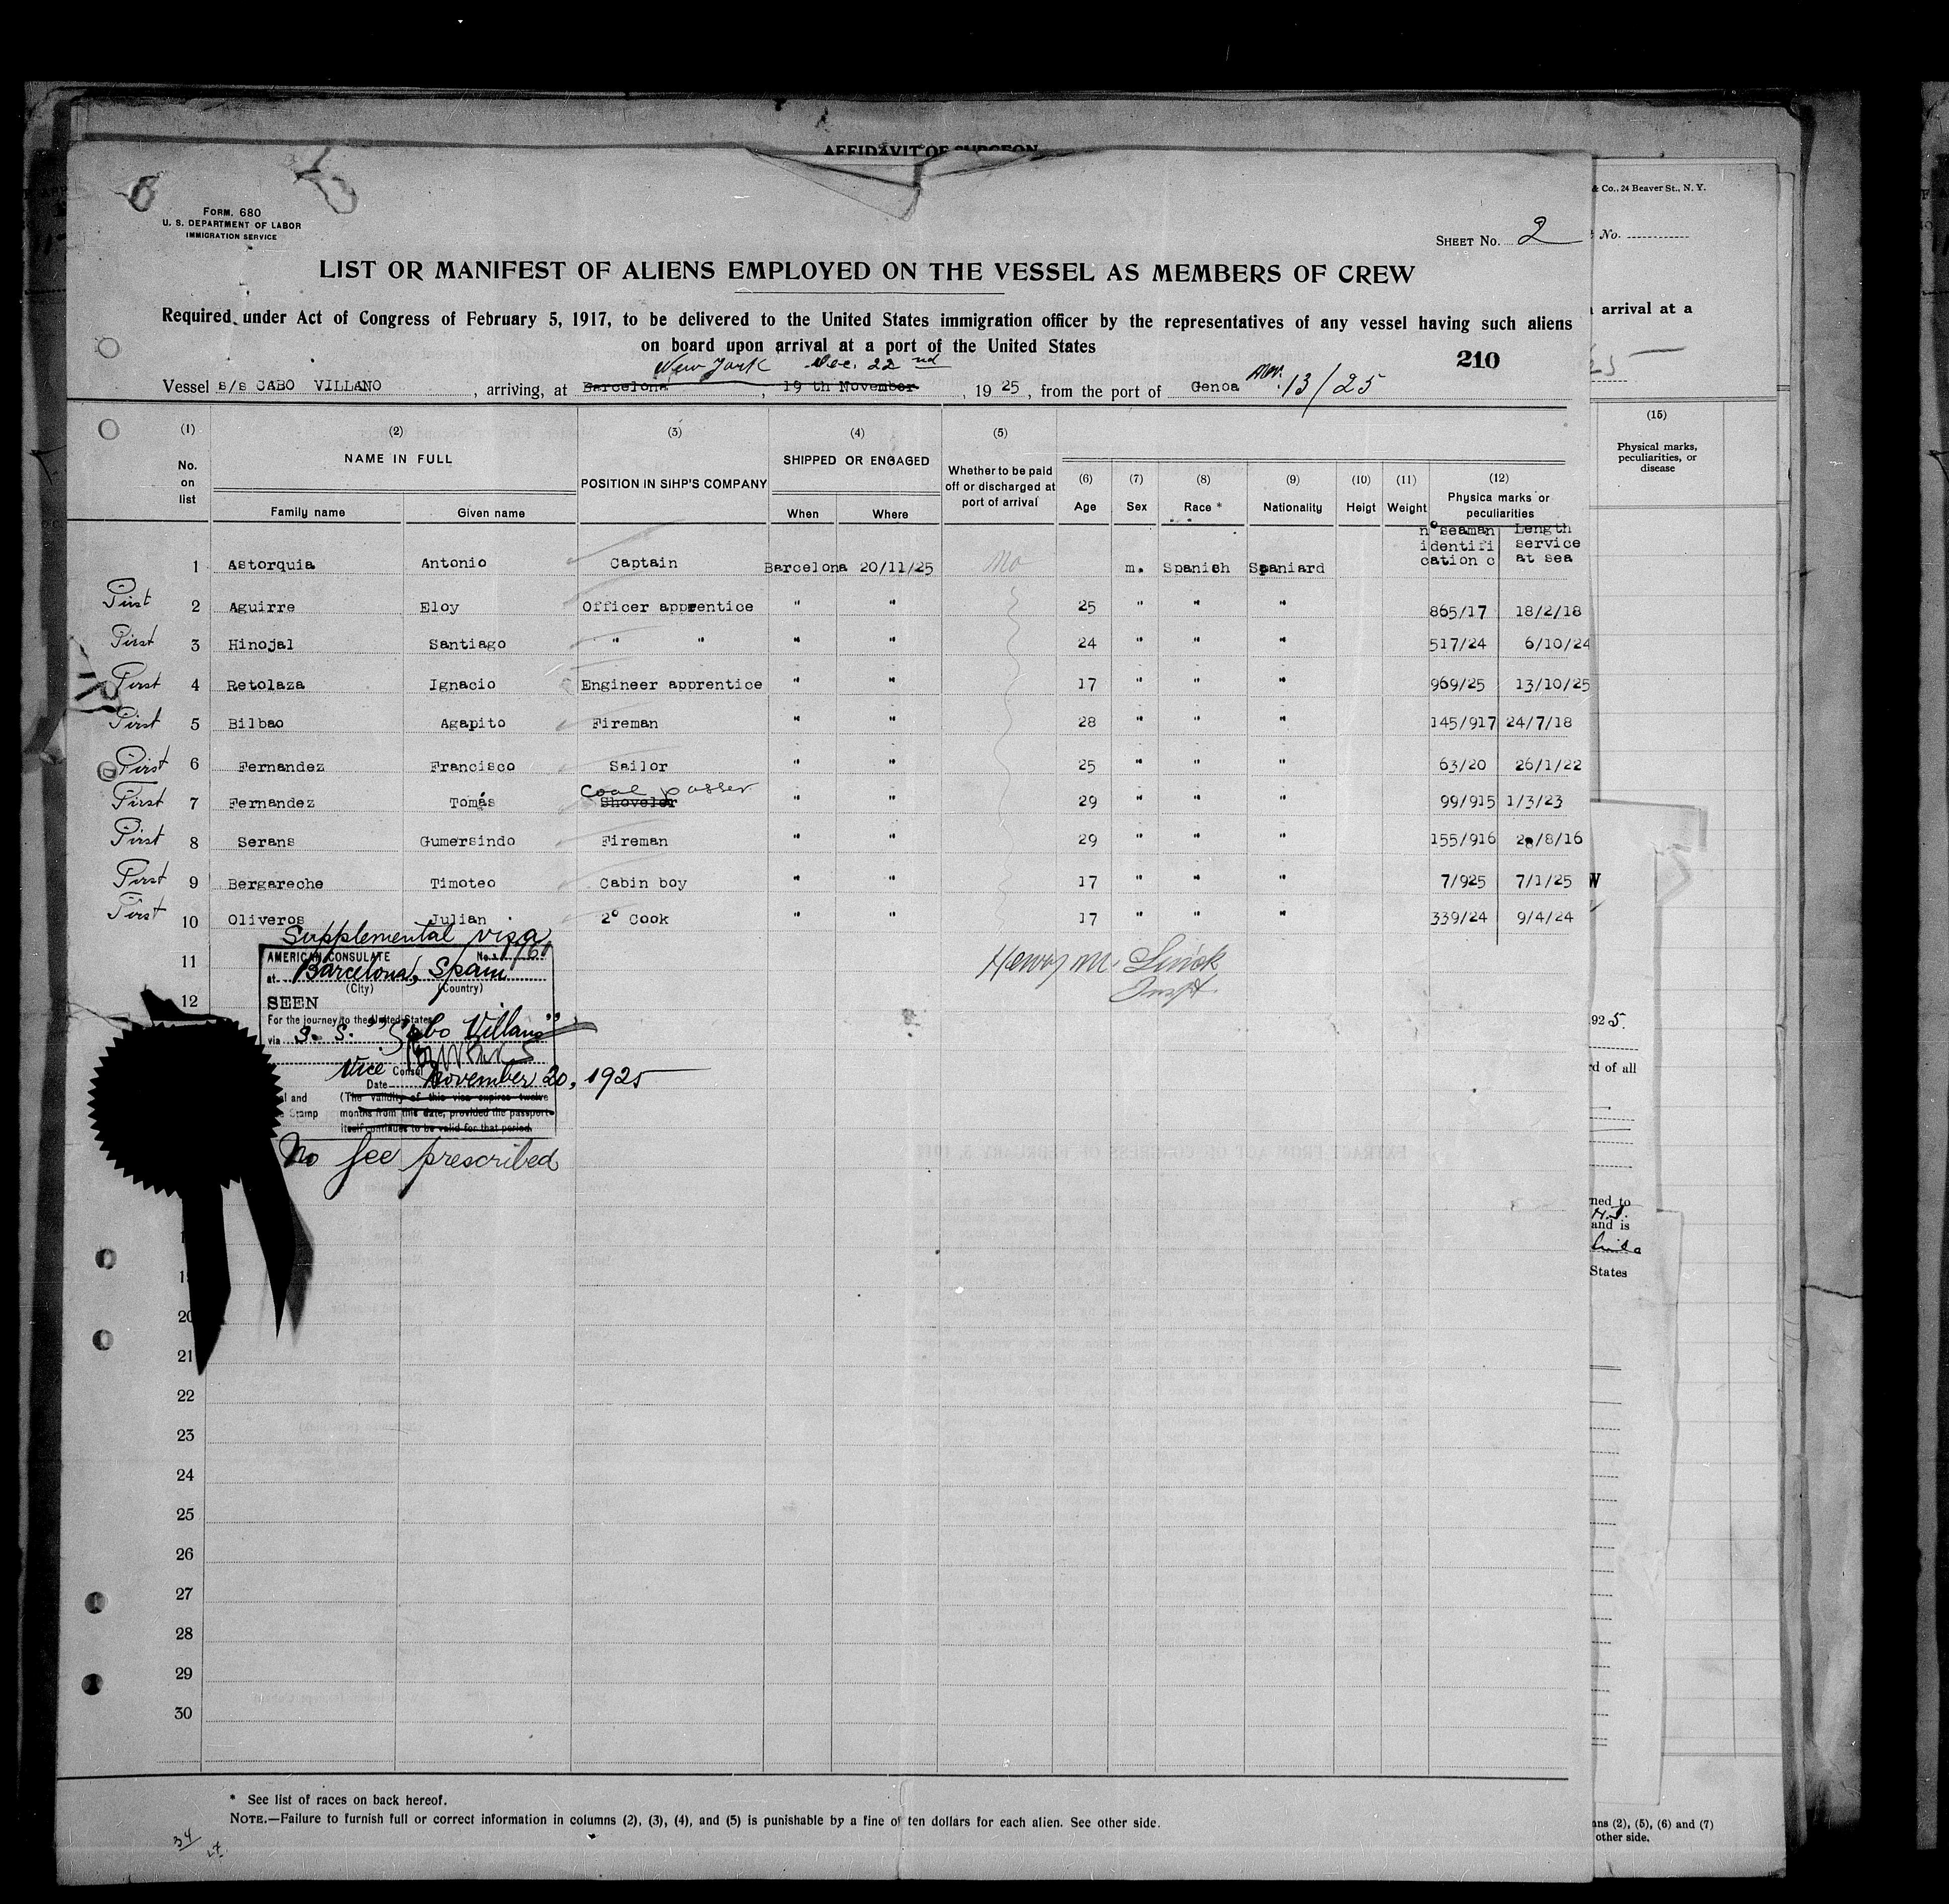 AFFIDAVIT OF SURGEON
& Co., 24 Beaver St., N. Y.
FORM. 680
U. S. DEPARTMENT OF LABOR
IMMIGRATION SERVICE
SHEET No. 2
No.
LIST OR MANIFEST OF ALIENS EMPLOYED ON THE VESSEL AS MEMBERS OF CREW
Required under Act of Congress of February 5, 1917, to be delivered to the United States immigration officer by the representatives of any vessel having such aliens
on board upon arrival at a port of the United States
arrival at a
210
New York Dec. 22nd
Vessel s/s CABO VILLANO, arriving, at Barcelona, 19 th November, 1925, from the port of Genoa Nov. 13/25
(1) (2) (3) (4) (5) (15)
No. on list
NAME IN FULL
POSITION IN SIHP'S COMPANY
SHIPPED OR ENGAGED
Whether to be paid off or discharged at port of arrival
(6) (7) (8) (9) (10) (11) (12)
Family name Given name When Where Age Sex Race * Nationality Heigt Weight Physica marks or peculiarities
Physical marks, peculiarities, or disease
n° seaman identifi cation c Length service at sea
1 Astorquia Antonio Captain Barcelona 20/11/25 No m. Spanish Spaniard
First 2 Aguirre Eloy Officer apprentice " " 25 " " " 865/17 18/2/18
First 3 Hinojal Santiago " " " " 24 " " " 517/24 6/10/24
First 4 Retolaza Ignacio Engineer apprentice " " 17 " " " 969/25 13/10/25
First 5 Bilbao Agapito Fireman " " 28 " " " 145/917 24/7/18
First 6 Fernandez Francisco Sailor " " 25 " " " 63/20 26/1/22
First 7 Fernandez Tomás Shoveler Coal passer " " 29 " " " 99/915 1/3/23
First 8 Serans Gumersindo Fireman " " 29 " " " 155/916 /8/16
First 9 Bergareche Timoteo Cabin boy " " 17 " " " 7/925 7/1/25
First 10 Oliveros Julian 2° Cook " " 17 " " " 339/24 9/4/24
Supplemental visa
11
12
AMERICAN CONSULATE No. 1761
at Barcelona, Spain
(City) (Country)
SEEN
For the journey to the United States
via S. S. "Cabo Villano"
Vice Consul
Date November 20, 1925
(The validity of this visa expires twelve
months from this date, provided the passport
itself continues to be valid for that period.
al and
Stamp
No fee prescribed
Henry M. Linick
Inspt.
925.
rd of all
ned to
N.J.
and is
States
20
21
22
23
24
25
26
27
28
29
30
* See list of races on back hereof.
NOTE.—Failure to furnish full or correct information in columns (2), (3), (4), and (5) is punishable by a fine of ten dollars for each alien. See other side.
34
ns (2), (5), (6) and (7)
other side.